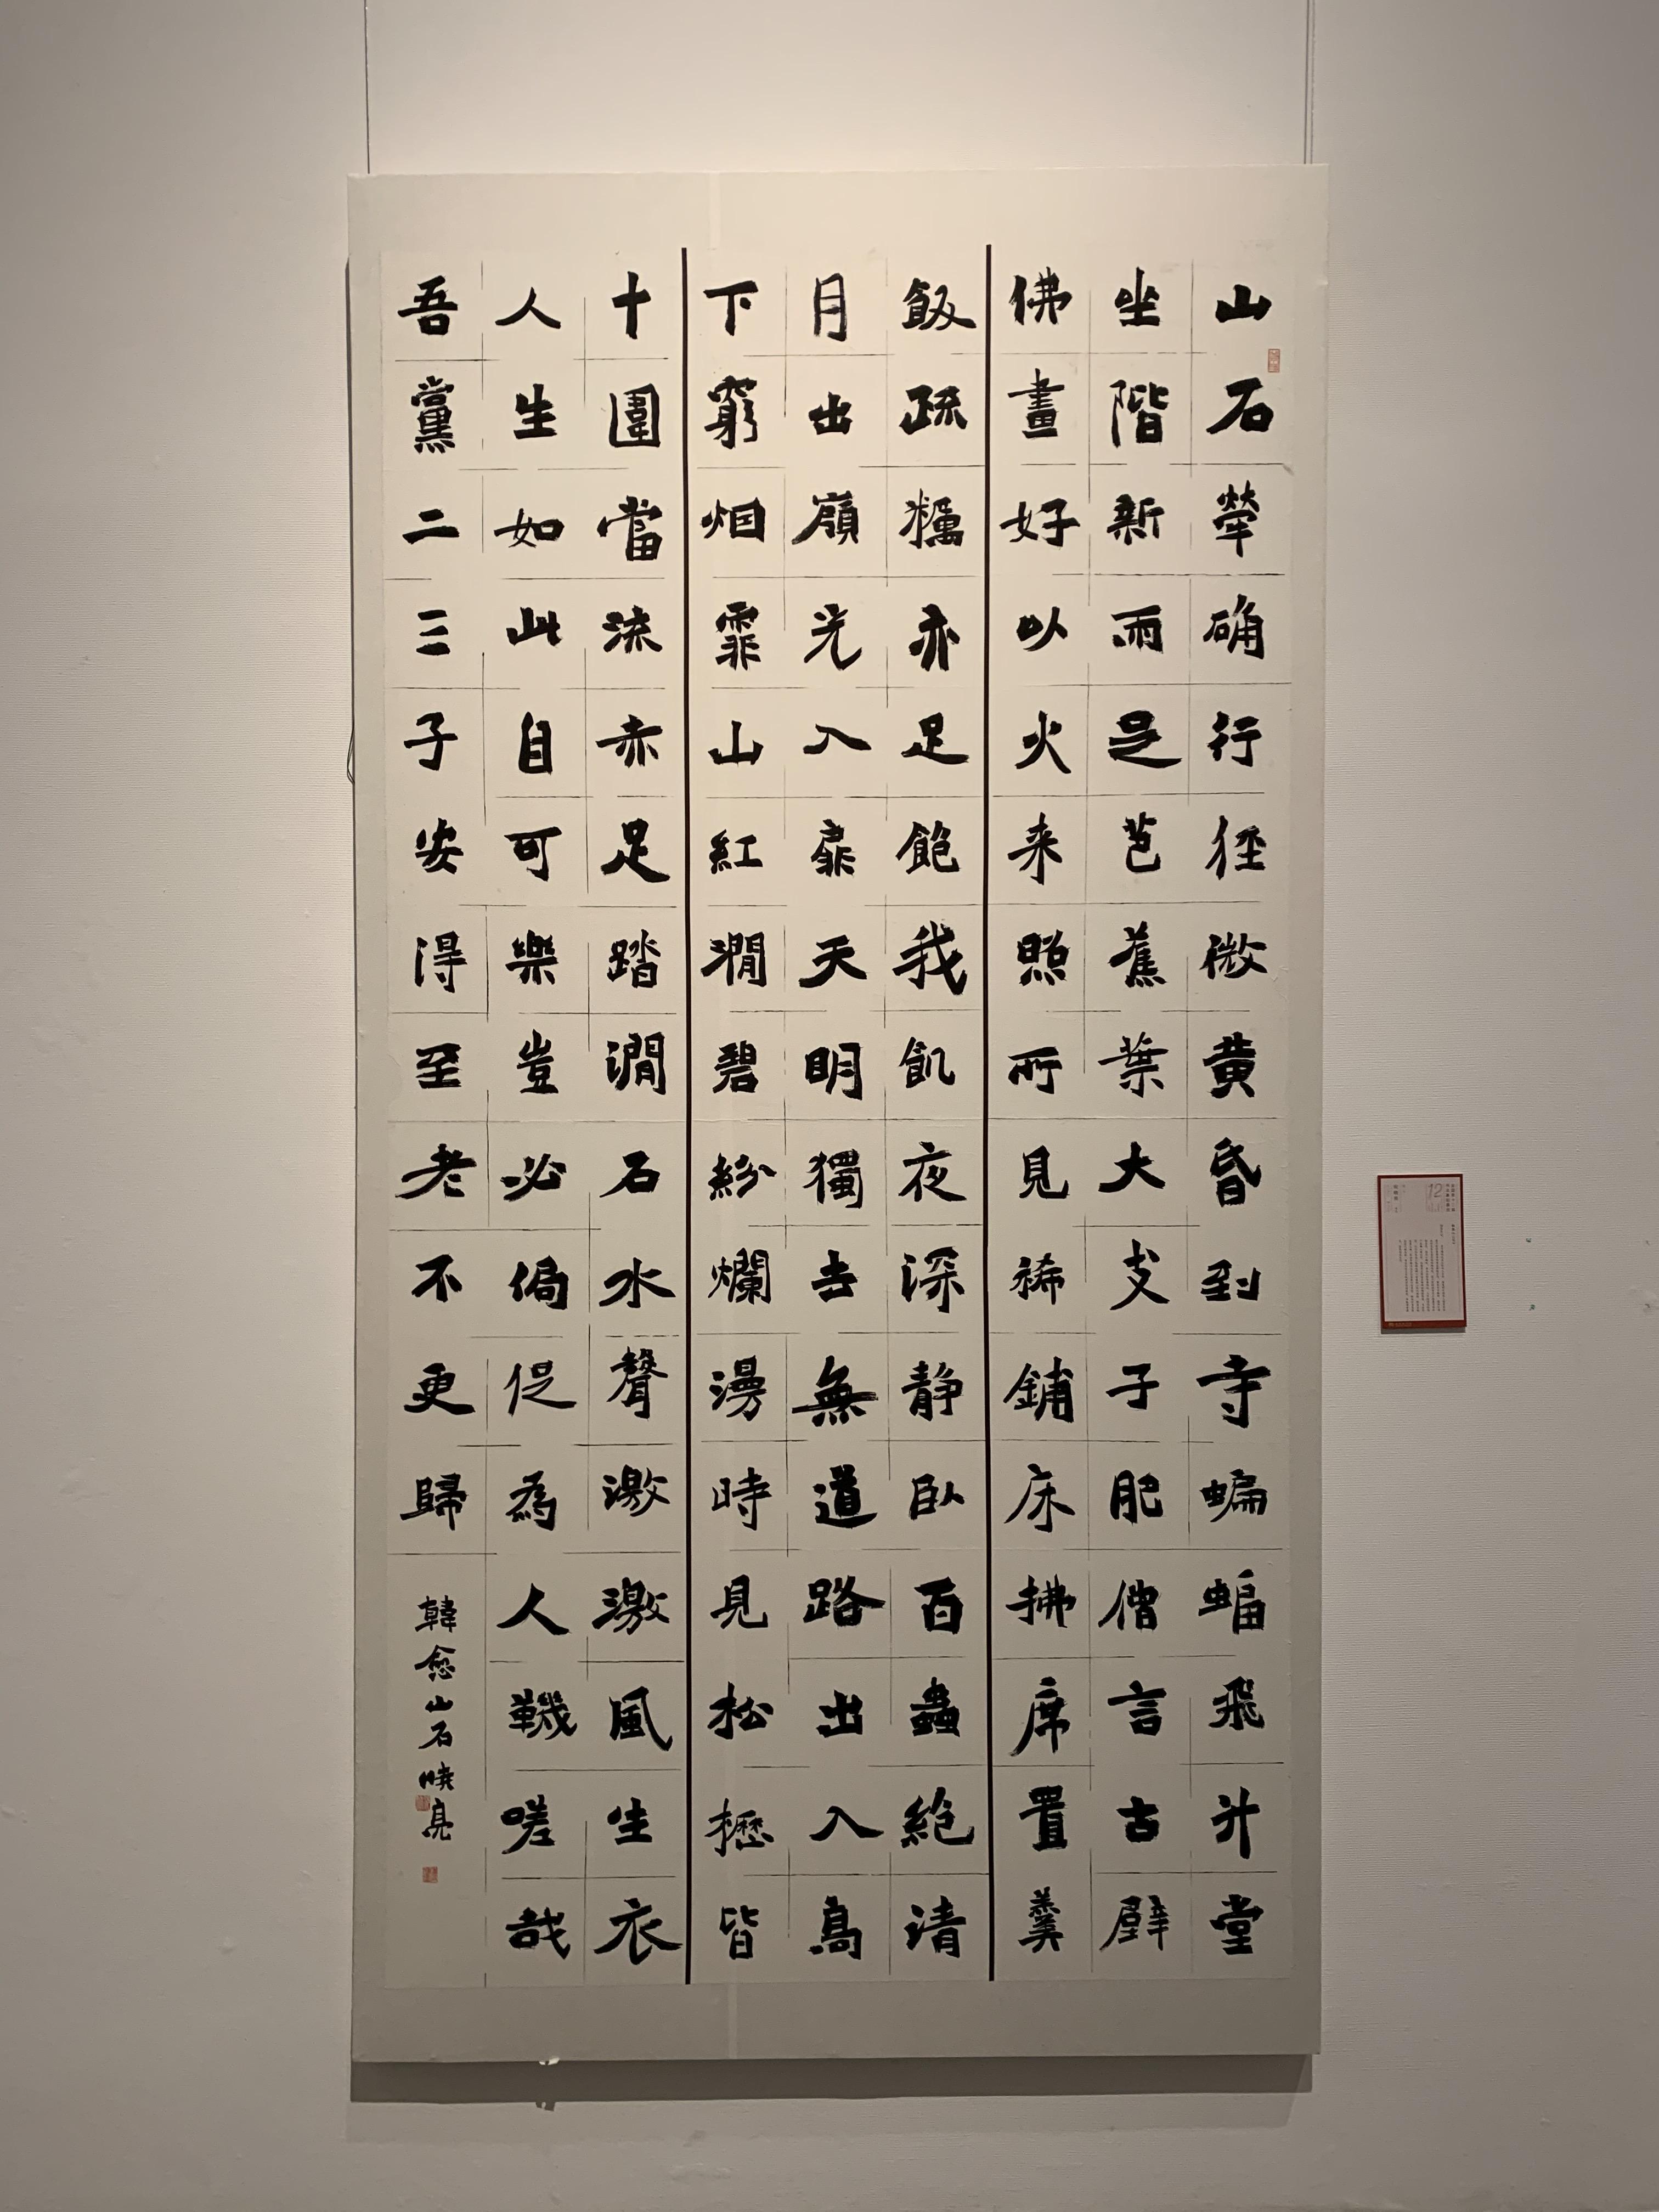 山石犖确行徑微黄昏到寺蝙蝠飛升堂
坐階新雨足芭蕉葉大支子肥僧言古壁
佛畫好以火来照所見稀鋪床拂席置羹
飯疏糲亦足飽我飢夜深静卧百蟲絶清
月出嶺光入扉天明獨去無道路出入高
下窮烟霏山紅澗碧紛爛漫時見松櫪皆
十圍當流赤足踏澗石水聲激激風生衣
人生如此自可樂豈必侷促為人鞿嗟哉
吾黨二三子安得至老不更歸
韓愈山石曉亮
12